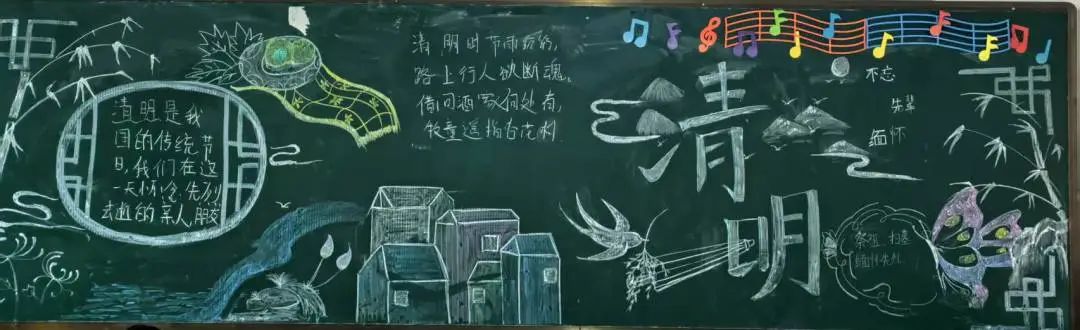 清明是我
国的传统节
日,我们在这
一天怀念先烈
去逝的亲人,朋友
清明时节雨纷纷,
路上行人欲断魂。
借问酒家何处有,
牧童遥指杏花村
清
明
不忘
先辈
缅怀
祭祖 扫墓
缅怀先烈